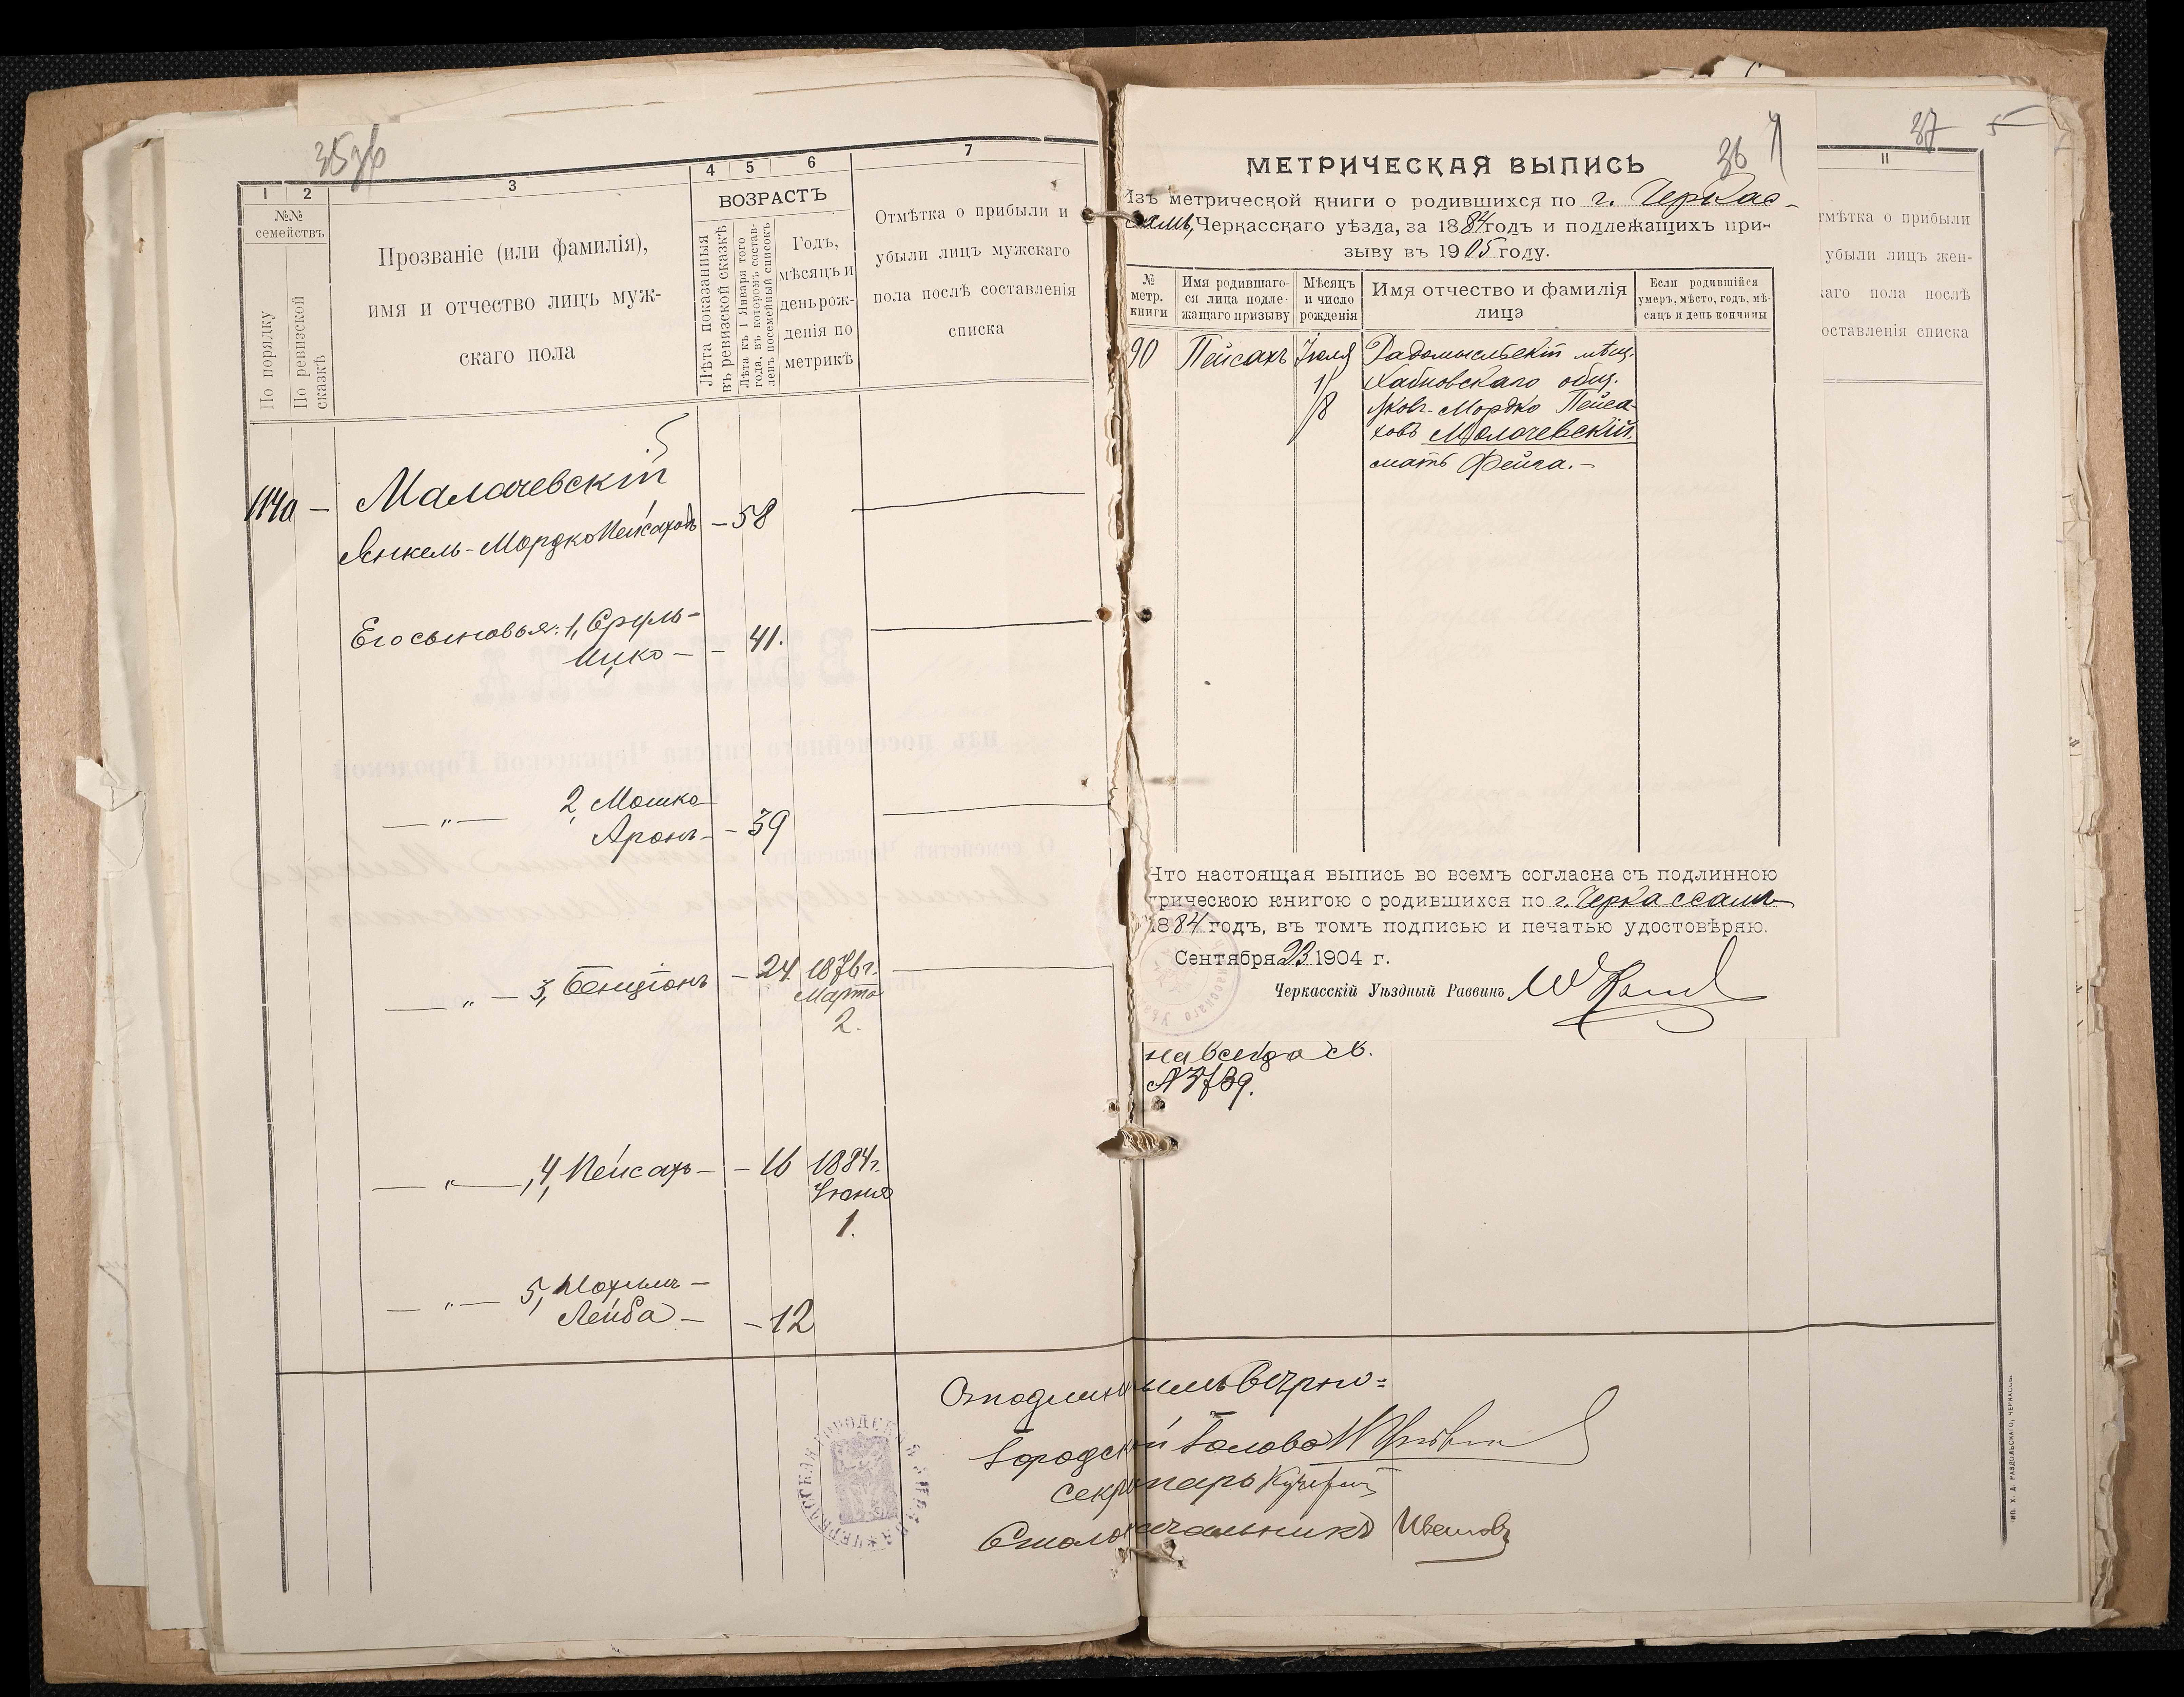 35об
1
2
3
4
5
6
7
№№
семействъ
По порядку
По ревизской
сказкѣ
Прозваніе (или фамилія),
имя и отчество лицъ муж-
скаго пола
ВОЗРАСТЪ
Лѣта показанныя
въ ревизской сказкѣ
Лѣта къ 1 Января того
года, въ которомъ состав-
ленъ посемейный списокъ
Годъ,
мѣсяцъ и
день рож-
денія по
метрикѣ
Отмѣтка о прибыли и
убыли лицъ мужскаго
пола послѣ составленія
списка
5
114а –
Малочевскій
Янкель-Мордко Пейсаховъ – 58
Его сыновья: 1, Сруль-
Ицко – – 41.
— „ — 2, Мошко
Аронъ – – 39
— „ — 3, Бенціонъ – 24 1876 г.
Марта
2.
— „ —, 4, Пейсахъ – – 16 1884 г.
Іюня
1.
— „ — 5, Нохимъ –
Лейба – – 12
Съ подлиннымъ вѣрно:
Городской Голова
Секретарь
Столоначальникъ Ивановъ
36
МЕТРИЧЕСКАЯ ВЫПИСЬ
Изъ метрической книги о родившихся по г. Черкас-
самъ, Черкасскаго уѣзда, за 1884 годъ и подлежащихъ при-
зыву въ 1905 году.
№
метр.
книги
Имя родившаго-
ся лица подле-
жащаго призыву
Мѣсяцъ
и число
рожденія
Имя отчество и фамилія
лица
Если родившійся
умеръ, мѣсто, годъ, мѣ-
сяцъ и день кончины
90 Пейсахъ Іюля Радомысльскій мѣщ.
1/8 Хабновскаго общ.
Яковъ-Мордко Пейса-
ховъ Молочевскій,
мать Фейга. –
Что настоящая выпись во всемъ согласна съ подлинною
трическою книгою о родившихся по г. Черкассамъ
1884 годъ, въ томъ подписью и печатью удостовѣряю.
Сентября 23 1904 г.
Черкасскій Уѣздный Раввинъ
навсегда св.
№ 3739.
37
5
11
тмѣтка о прибыли
убыли лицъ жен-
каго пола послѣ
оставленія списка
ТИП. Х. Д. РАЗДОЛЬСКАГО, ЧЕРКАССЫ.